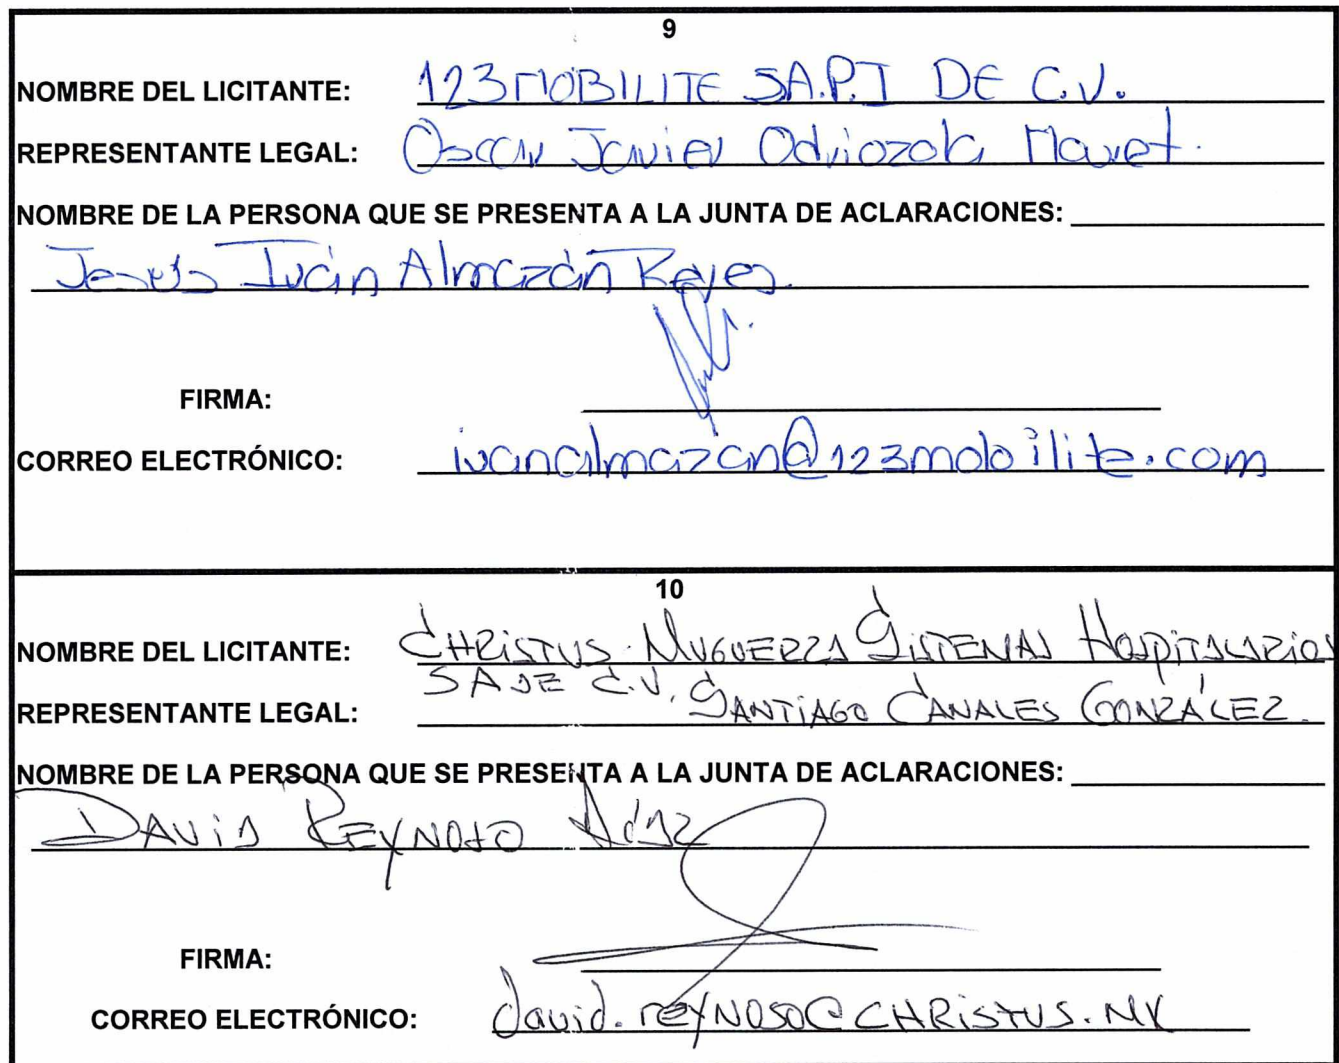 9
NOMBRE DEL LICITANTE: 123MOBILITE S.A.P.I DE C.V.
REPRESENTANTE LEGAL: Oscar Javier Odriozola Mayet.
NOMBRE DE LA PERSONA QUE SE PRESENTA A LA JUNTA DE ACLARACIONES:
Jesús Iván Almazán Reyes
FIRMA:
CORREO ELECTRÓNICO: ivanalmazan@123mobilite.com
10
NOMBRE DEL LICITANTE: CHRISTUS MUGUERZA SISTEMAS HOSPITALARIOS
SA DE C.V.
REPRESENTANTE LEGAL: SANTIAGO CANALES GONZÁLEZ.
NOMBRE DE LA PERSONA QUE SE PRESENTA A LA JUNTA DE ACLARACIONES:
DAVID REYNOSO
FIRMA:
CORREO ELECTRÓNICO: david.reynoso@CHRISTUS.MX